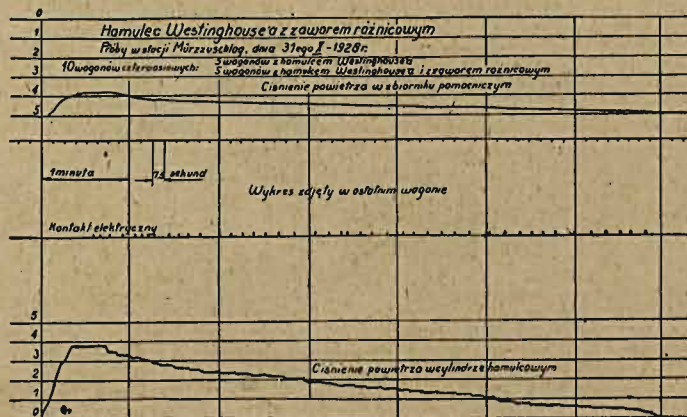 0
Hamulec Westinghouse'a z zaworem różnicowym
1
Próby w stacji Mürzzuschlag, dnia 31ego II-1928r.
2
10 wagonów czteroosiowych: 5 wagonów z hamulcem Westinghouse'a
5 wagonów z hamulcem Westinghouse'a i zaworem różnicowym
3
Ciśnienie powietrza w zbiorniku pomocniczym
4
5
1 minuta
7,5 sekund
Wykres zdjęty w ostatnim wagonie
Kontakt elektryczny
5
4
3
Ciśnienie powietrza w cylindrze hamulcowym
2
1
0